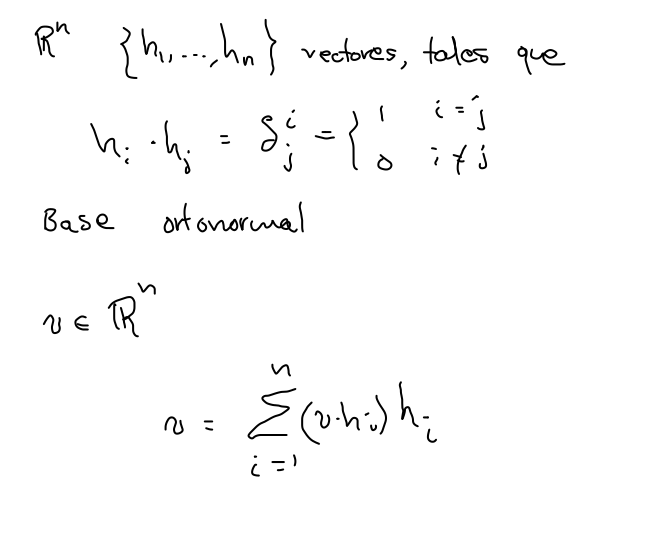 ℝⁿ {h₁,...,hₙ} vectores, tales que
hᵢ · hⱼ = δⁱⱼ = { 1 i = j
0 i ≠ j
Base ortonormal
v ∈ ℝⁿ
v = ∑ᵢ₌₁ⁿ (v·hᵢ) hᵢ